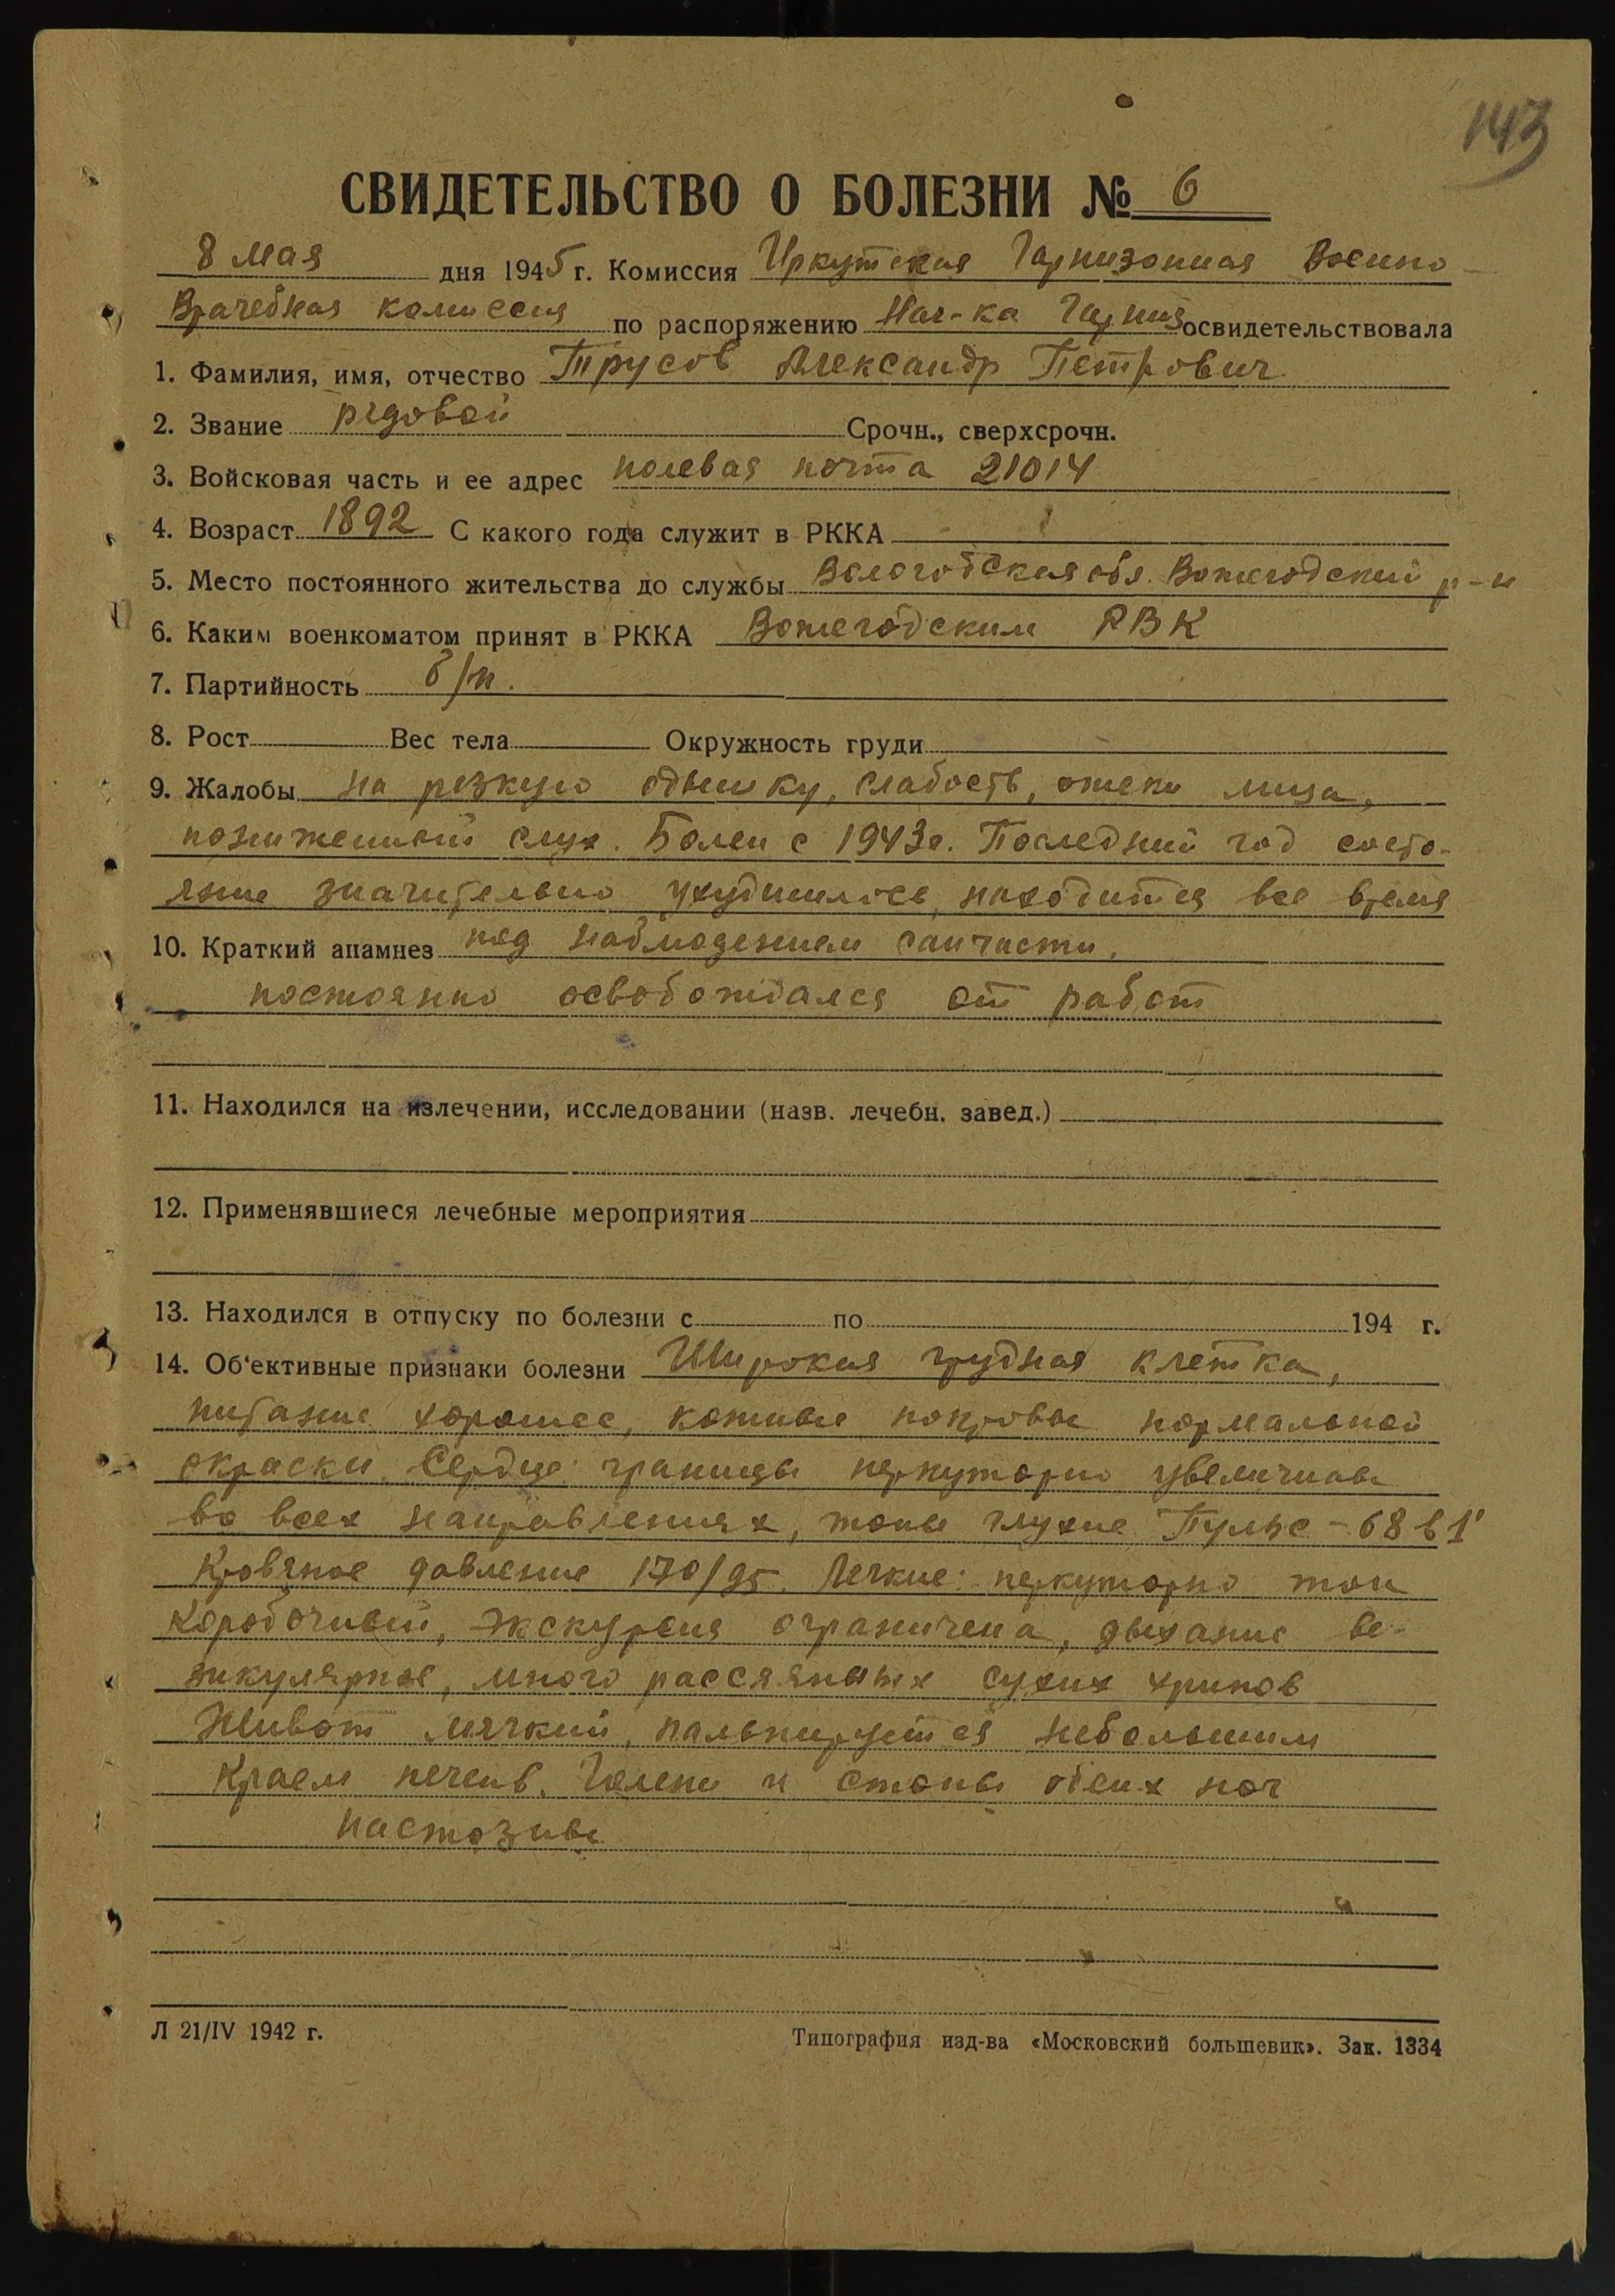 143
СВИДЕТЕЛЬСТВО О БОЛЕЗНИ № 6
8 мая дня 1945 г. Комиссия Иркутская Гарнизонная Военно-
Врачебная комиссия по распоряжению Нач-ка Гарниз освидетельствовала
1. Фамилия, имя, отчество Трусов Александр Петрович
2. Звание рядовой Срочн., сверхсрочн.
3. Войсковая часть и ее адрес полевая почта 21014
4. Возраст 1892 С какого года служит в РККА
5. Место постоянного жительства до службы Вологодская обл. Вожегодский р-н
6. Каким военкоматом принят в РККА Вожегодским РВК
7. Партийность б/п.
8. Рост Вес тела Окружность груди
9. Жалобы на резкую одышку, слабость, отеки лица,
пониженный слух. Болен с 1943г. Последний год состо-
яние значительно ухудшилось, находится все время
10. Краткий анамнез под наблюдением санчасти,
постоянно освобождался от работ
11. Находился на излечении, исследовании (назв. лечебн. завед.)
12. Применявшиеся лечебные мероприятия
13. Находился в отпуску по болезни с по 194 г.
14. Об'ективные признаки болезни Широкая грудная клетка,
питание хорошее, кожные покровы нормальной
окраски. Сердце: границы перкуторно увеличены
во всех направлениях, тоны глухие Пульс - 68 в 1'
Кровяное давление 170/95. Легкие: перкуторно тон
коробочный, экскурсия ограничена, дыхание ве-
зикулярное, много рассеянных сухих хрипов
Живот мягкий, пальпируется небольшим
краем печень. Голени и стопы обеих ног
пастозны
Л 21/IV 1942 г.
Типография изд-ва «Московский большевик». Зак. 1334